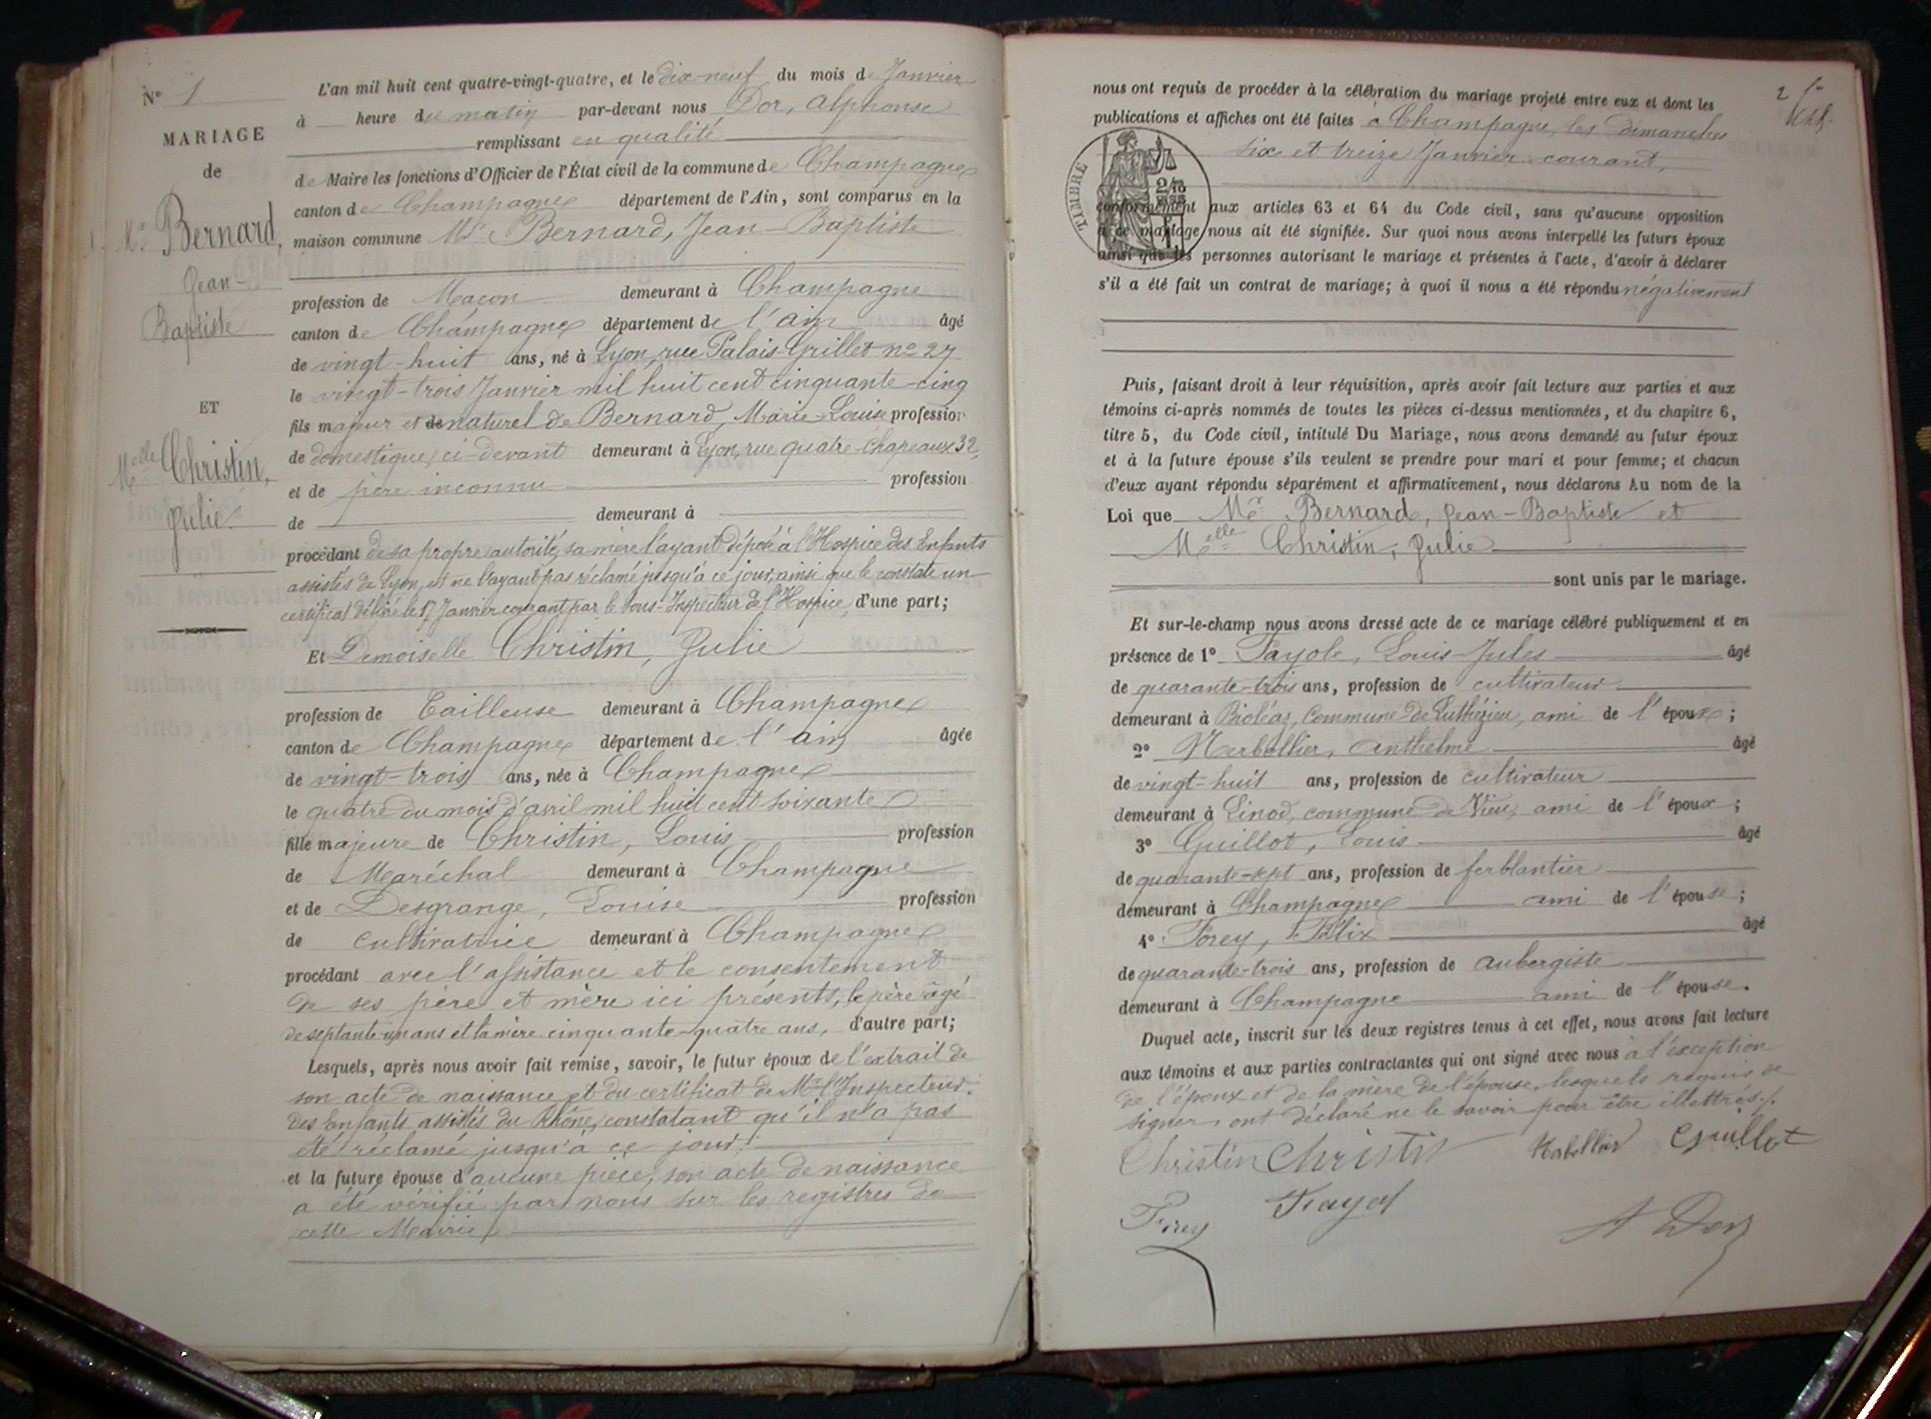 N° 1
MARIAGE
de
Mr Bernard,
Jean-
Baptiste
ET
Melle Christin,
Julie
L'an mil huit cent quatre-vingt-quatre, et le dix-neuf du mois de Janvier
à heure du matin par-devant nous Dor, Alphonse
remplissant en qualité
de Maire les fonctions d'Officier de l'État civil de la commune de Champagne
canton de Champagne département de l'Ain, sont comparus en la
maison commune Mr Bernard, Jean-Baptiste
profession de Maçon demeurant à Champagne
canton de Champagne département de l'ain âgé
de vingt-huit ans, né à Lyon, rue Palais-Grillet n° 27
le vingt-trois Janvier mil huit cent cinquante-cinq
fils majeur et de naturel de Bernard, Marie-Louise profession
de domestique, ci-devant demeurant à Lyon, rue quatre-chapeaux 32,
et de père inconnu profession
de demeurant à
procédant de sa propre autorité, sa mère l'ayant déposé à l'Hospice des Enfants
assistés de Lyon, et ne l'ayant pas réclamé jusqu'à ce jour, ainsi que le constate un
certificat délivré le 17 Janvier courant par le Sous-Inspecteur de l'Hospice, d'une part;
Et Demoiselle Christin, Julie
profession de Tailleuse demeurant à Champagne
canton de Champagne département de l'ain âgée
de vingt-trois ans, née à Champagne
le quatre du mois d'avril mil huit cent soixante
fille majeure de Christin, Louis profession
de Maréchal demeurant à Champagne
et de Desgrange, Louise profession
de cultivatrice demeurant à Champagne
procédant avec l'assistance et le consentement
de ses père et mère ici présents, le père âgé
de septante-un ans et la mère cinquante-quatre ans, d'autre part;
Lesquels, après nous avoir fait remise, savoir, le futur époux de l'extrait de
son acte de naissance et du certificat de Mr l'Inspecteur
des Enfants assistés du Rhône, constatant qu'il n'a pas
été réclamé jusqu'à ce jour;
et la future épouse d'aucune pièce, son acte de naissance
a été vérifié par nous sur les registres de
cette Mairie
2
nous ont requis de procéder à la célébration du mariage projeté entre eux et dont les
publications et affiches ont été faites à Champagne, les dimanches
six et treize Janvier courant,
TIMBRE
conformément aux articles 63 et 64 du Code civil, sans qu'aucune opposition
à ce mariage nous ait été signifiée. Sur quoi nous avons interpellé les futurs époux
ainsi que les personnes autorisant le mariage et présentes à l'acte, d'avoir à déclarer
s'il a été fait un contrat de mariage; à quoi il nous a été répondu négativement
Puis, faisant droit à leur réquisition, après avoir fait lecture aux parties et aux
témoins ci-après nommés de toutes les pièces ci-dessus mentionnées, et du chapitre 6,
titre 5, du Code civil, intitulé Du Mariage, nous avons demandé au futur époux
et à la future épouse s'ils veulent se prendre pour mari et pour femme; et chacun
d'eux ayant répondu séparément et affirmativement, nous déclarons Au nom de la
Loi que Mr Bernard, Jean-Baptiste et
Melle Christin, Julie
sont unis par le mariage.
Et sur-le-champ nous avons dressé acte de ce mariage célébré publiquement et en
présence de 1° Fayole, Louis-Jules âgé
de quarante-trois ans, profession de cultivateur
demeurant à Bioléaz, commune de Luthézieu, ami de l'époux;
2° Marbollier, Anthelme âgé
de vingt-huit ans, profession de cultivateur
demeurant à Linod, commune de Vieu, ami de l'époux;
3° Guillot, Louis âgé
de quarante-sept ans, profession de ferblantier
demeurant à Champagne ami de l'épouse;
4° Forey, Félix âgé
de quarante-trois ans, profession de aubergiste
demeurant à Champagne ami de l'épouse.
Duquel acte, inscrit sur les deux registres tenus à cet effet, nous avons fait lecture
aux témoins et aux parties contractantes qui ont signé avec nous à l'exception
de l'époux et de la mère de l'épouse, lesquels requis de
signer, ont déclaré ne le savoir pour être illettrés.
Christin Christin Guillot
Forey Fayol A Dor